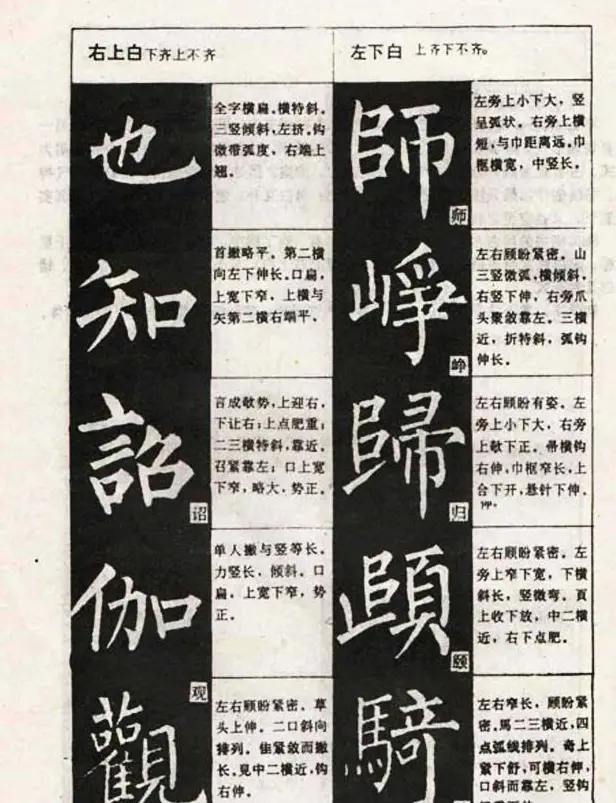 右上白下齐上不齐
也
全字横扁。横特斜。
三竖倾斜，左挤。钩
微带弧度，右端上
翘。
知
首撇略平。第二横
向左下伸长。口扁，
上宽下窄，上横与
矢第二横右端平。
詔
诏
言成敧势，上迎右，
下让右；上点肥重；
二三横特斜，靠近。
召紧靠左；口上宽
下窄，略大，势正。
伽
单人撇与竖等长。
力竖长，倾斜。口
扁，上宽下窄，势
正。
观
觀
左右顾盼紧密。草
头上伸。二口斜向
排列。隹紧敛而撇
长。見中二横近，钩
右伸。
左下白 上齐下不齐。
師
师
左旁上小下大，竖
呈弧状。右旁上横
短，与巾距离远。巾
框横宽，中竖长。
崢
峥
左右顾盼紧密。山
三竖微弧，横倾斜。
右竖下伸，右旁爪
头聚敛靠左。三横
近，折特斜，弧钩
伸长。
歸
归
左右顾盼有姿。左
旁上小下大，右旁
上敧下正。帚横钩
右伸，巾框窄长，上
合下开，悬针下伸。
頤
颐
左右顾盼紧密。左
旁上窄下宽，下横
斜长，竖微弯。頁
上收下放，中二横
近，右下点肥。
騎
左右窄长，顾盼紧
密。馬二三横近，四
点弧线排列。奇上
紧下舒，可横右伸，
口斜而靠左，竖钩